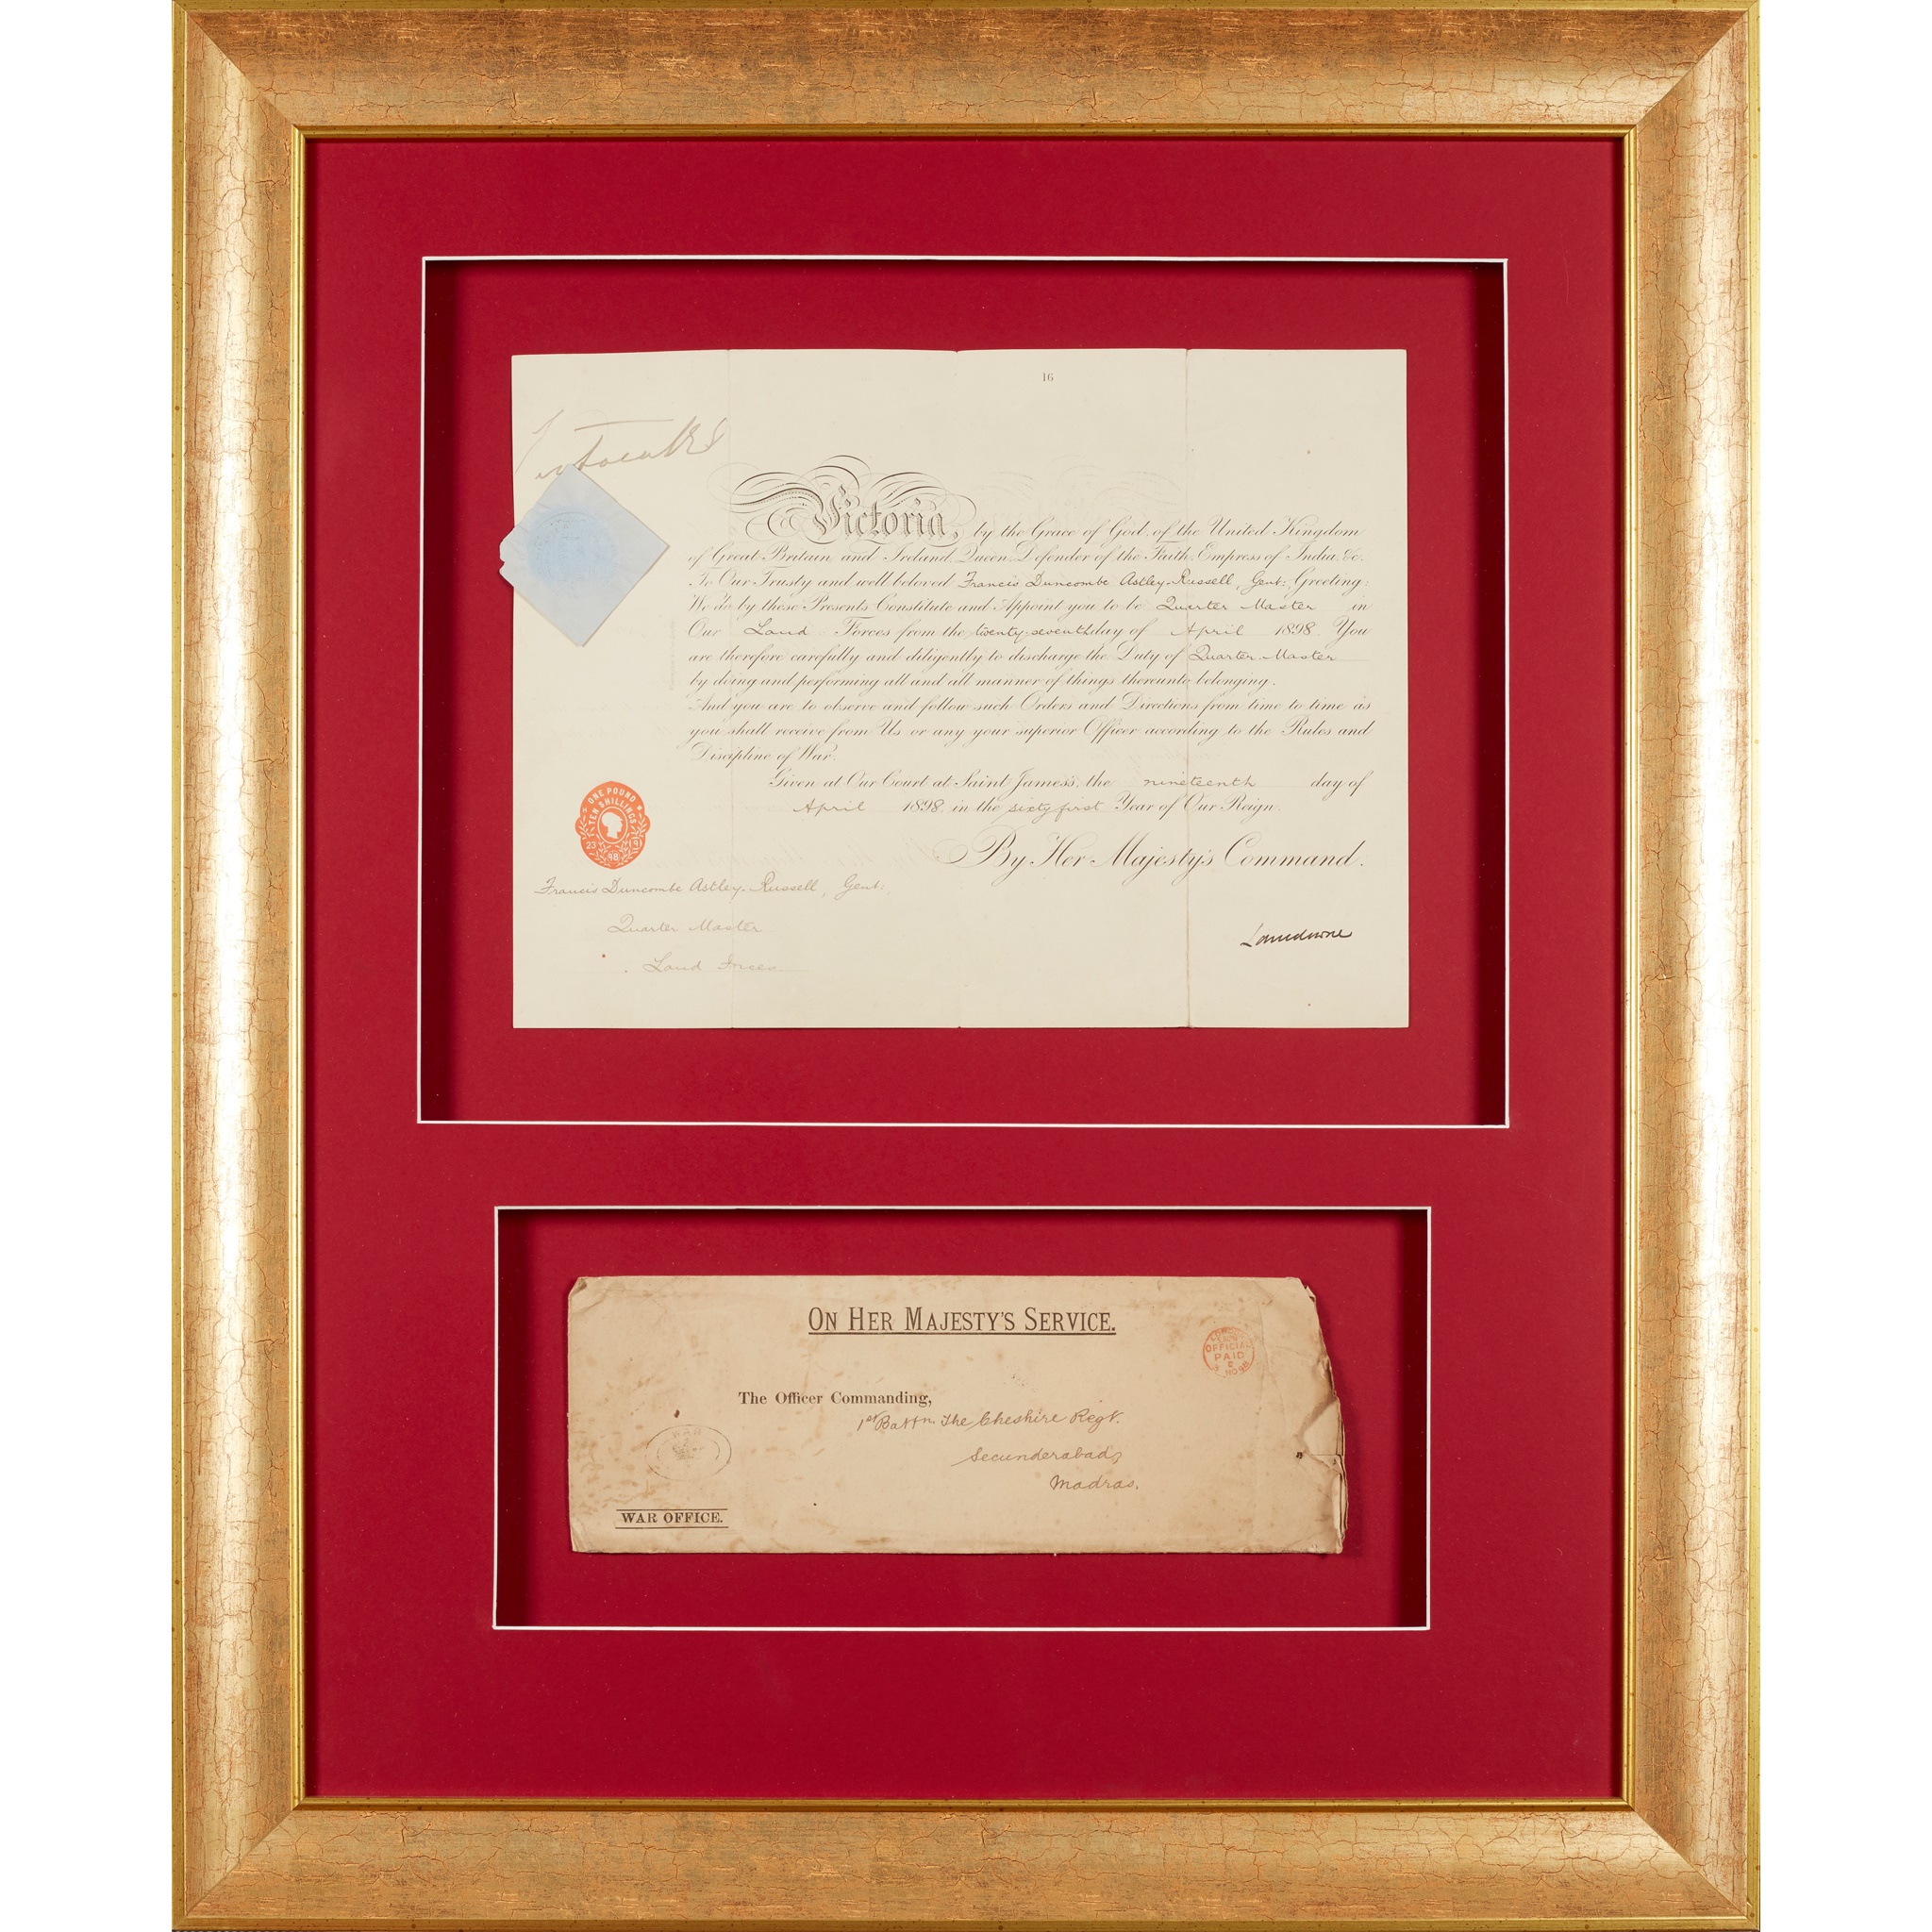 16
Victoria,
by the Grace of God, of the United Kingdom
of Great Britain and Ireland, Queen, Defender of the Faith, Empress of India, &c.
To Our Trusty and well beloved Francis Duncombe Astley-Russell, Gent: Greeting:
We do by these Presents Constitute and Appoint you to be Quarter Master in
Our Land Forces from the twenty-seventh day of April 1898. You
are therefore carefully and diligently to discharge the Duty of Quarter-Master
by doing and performing all and all manner of things thereunto belonging.
And you are to observe and follow such Orders and Directions from time to time as
you shall receive from Us or any your superior Officer according to the Rules and
Discipline of War.
Given at Our Court at Saint James's, the nineteenth day of
April 1898, in the sixty first Year of Our Reign.
By Her Majesty's Command.
ONE POUND
TEN SHILLINGS
23 9
98
Francis Duncombe Astley-Russell, Gent:
Quarter Master
Land Forces
Lansdowne
ON HER MAJESTY'S SERVICE.
LONDON
OFFICIAL
PAID
NO 98
The Officer Commanding,
1st Battn. The Cheshire Regt.
Secunderabad,
Madras.
WAR
WAR OFFICE.